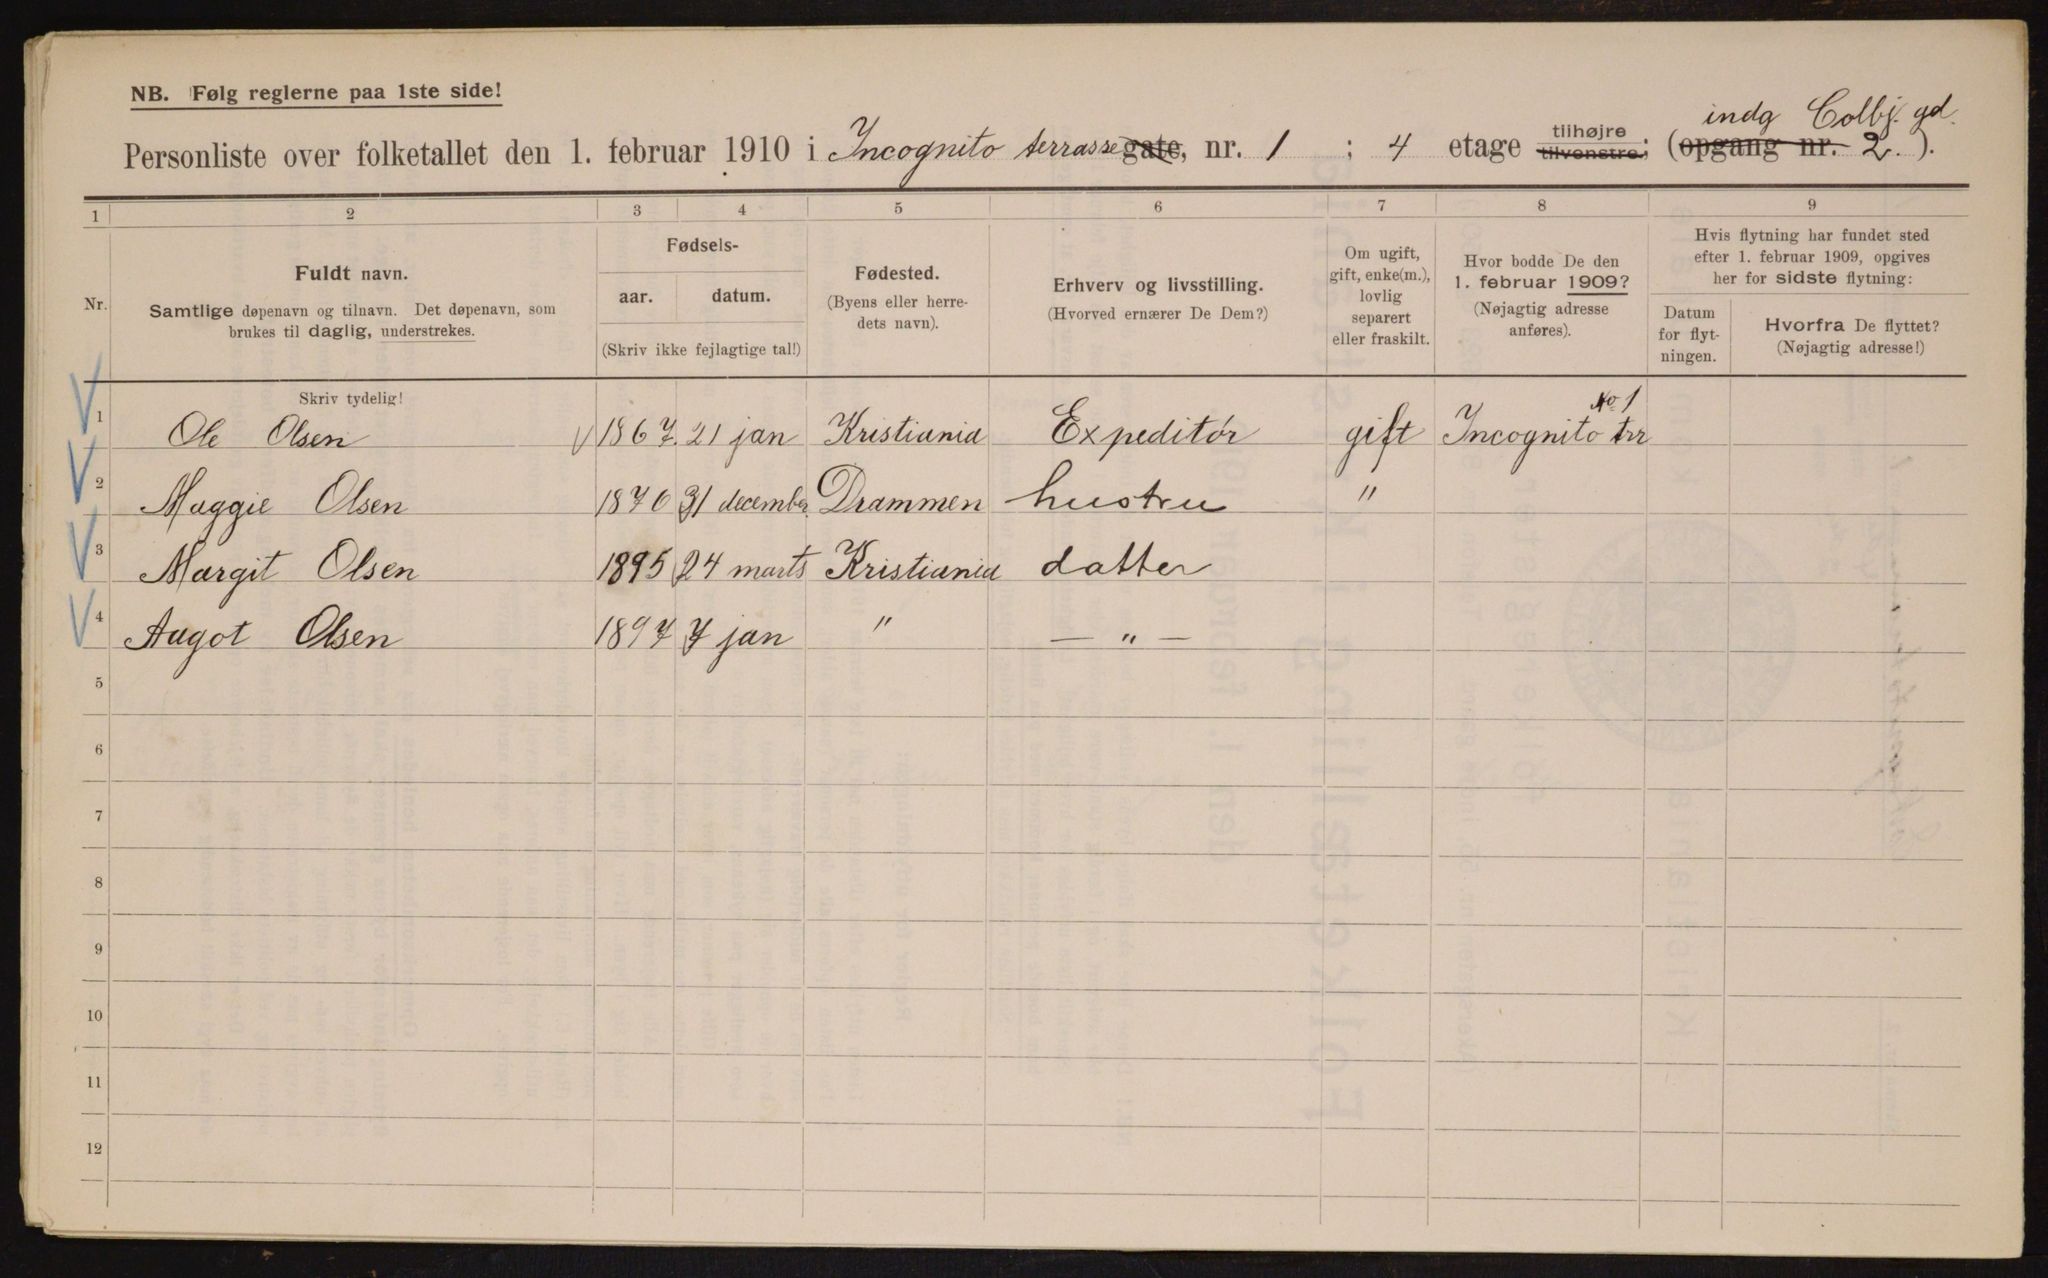 NB. Følg reglerne paa 1ste side!
indg Colbj. gd.
Personliste over folketallet den 1. februar 1910 i Incognito terrasse gate, nr. 1 ; 4 etage tilhøjre tilvenstre; (opgang nr. 2.).
1 2 3 4 5 6 7 8 9
Nr.
Fuldt navn.
Samtlige døpenavn og tilnavn. Det døpenavn, som
brukes til daglig, understrekes.
Fødsels-
aar. datum.
(Skriv ikke fejlagtige tal!)
Fødested.
(Byens eller herre-
dets navn).
Erhverv og livsstilling.
(Hvorved ernærer De Dem?)
Om ugift,
gift, enke(m.),
lovlig
separert
eller fraskilt.
Hvor bodde De den
1. februar 1909?
(Nøjagtig adresse
anføres).
Hvis flytning har fundet sted
efter 1. februar 1909, opgives
her for sidste flytning:
Datum
for flyt-
ningen.
Hvorfra De flyttet?
(Nøjagtig adresse!)
Skriv tydelig!
1 Ole Olsen 1867. 21 jan Kristiania Expeditør gift Incognito trr No 1
2 Maggie Olsen 1870 31 december Drammen hustru "
3 Margit Olsen 1895 24 marts Kristiania datter
4 Aagot Olsen 1897 7 jan " — " —
5
6
7
8
9
10
11
12